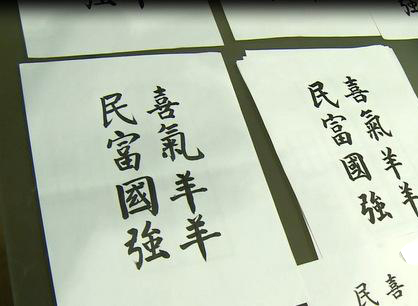 喜氣羊羊
民富國強
喜氣羊羊
民富國強
喜
民